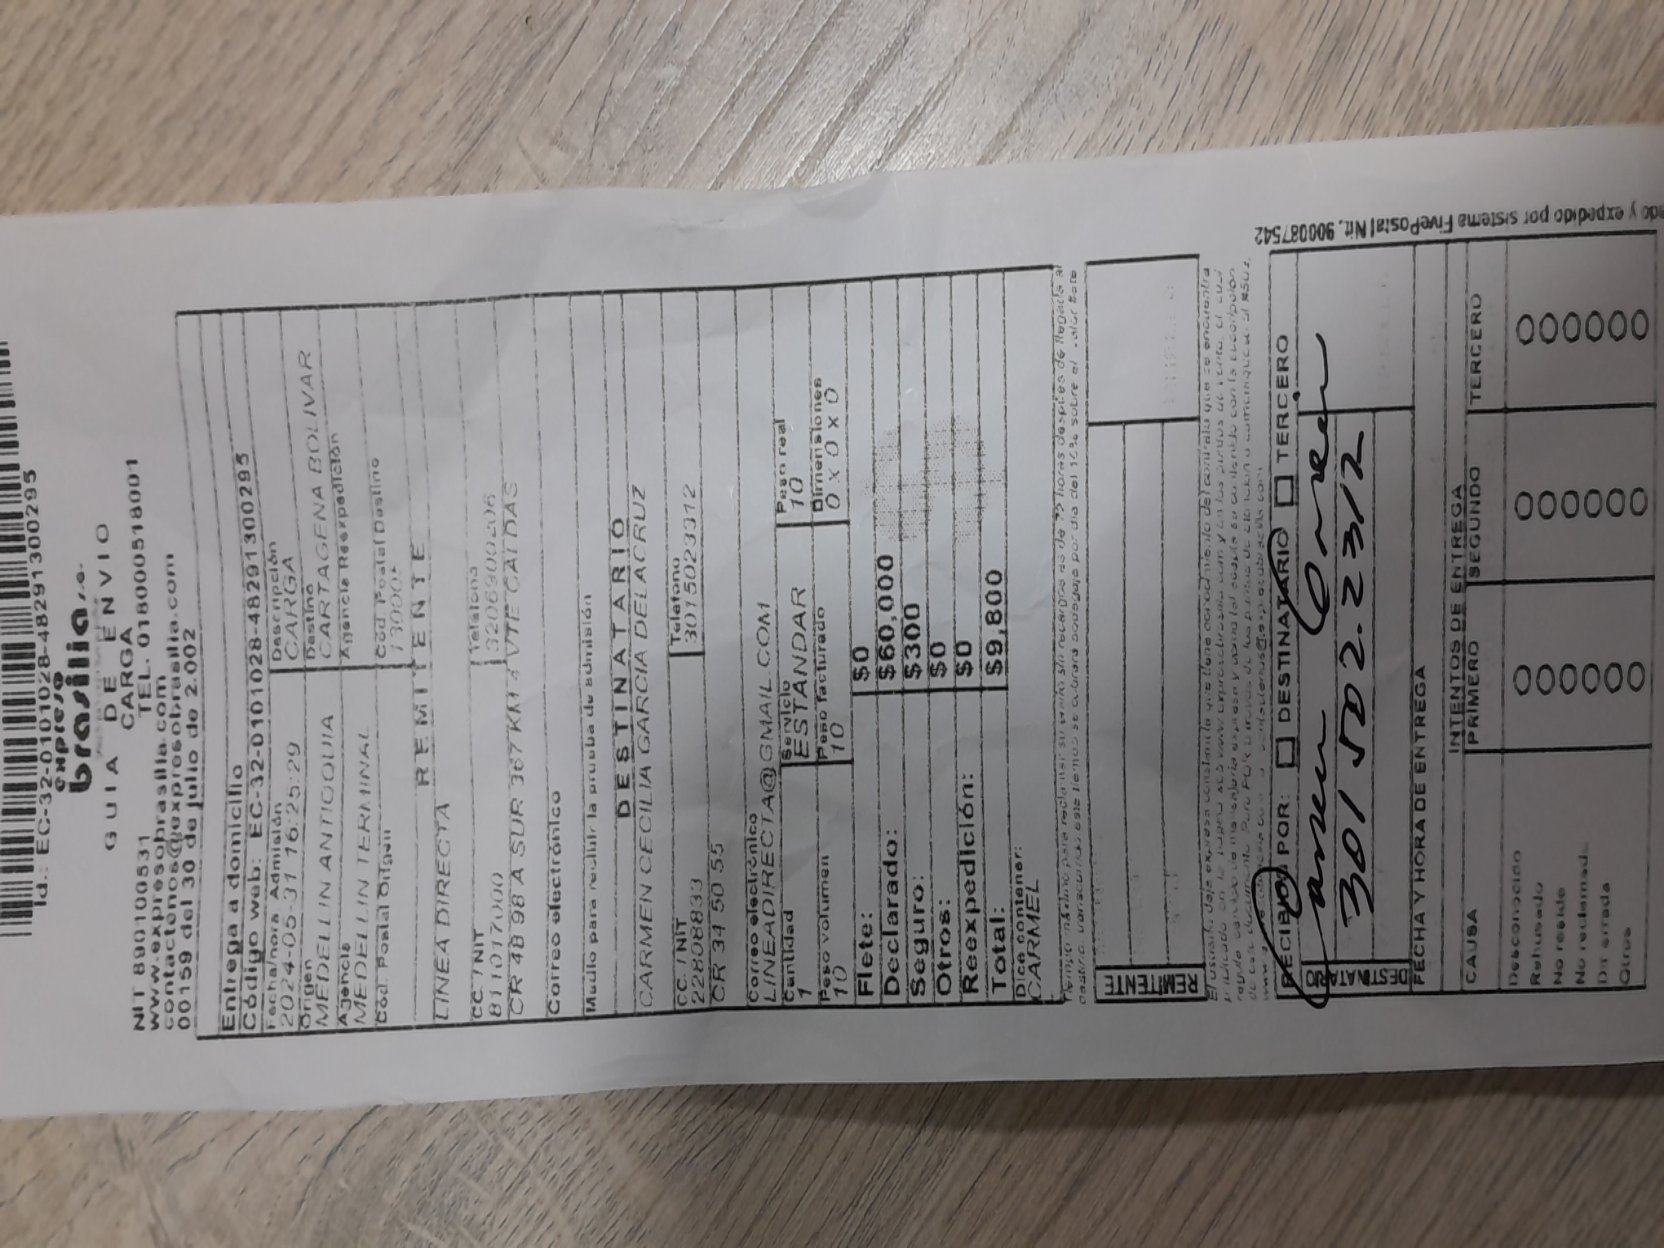 Id.: EC-32-0101028-48291300295
expreso
brasilia s.a.
GUIA DE ENVIO
CARGA
NIT 890100531 TEL. 018000518001
www.expresobrasilia.com
contactenos@expresobrasilia.com
00159 del 30 de julio de 2.002
Entrega a domicilio
Código web: EC-32-0101028-48291300295
Fecha/hora Admisión Descripción
2024-05-31 16:25:29 CARGA
Origen Destino
MEDELLIN ANTIOQUIA CARTAGENA BOLIVAR
Agencia Agencia Reexpedición
MEDELLIN TERMINAL
Cód. Postal Origen Cód. Postal Destino
REMITENTE
LINEA DIRECTA
CC. / NIT Telefono
811017000 3206900206
CR 48 98 A SUR 367 KM 4 VTE CALDAS
Correo electrónico
Medio para recibir la prueba de admisión
DESTINATARIO
CARMEN CECILIA GARCIA DELACRUZ
CC. / NIT Telefono
22808833 3015022312
CR 34 50 55
Correo electrónico
LINEADIRECTA@GMAIL.COM
Cantidad Servicio Peso real
1 ESTANDAR 10
Peso volumen Peso facturado Dimensiones
10 10 0 X 0 X 0
Flete: $0
Declarado: $60,000
Seguro: $300
Otros: $0
Reexpedición: $0
Total: $9,800
Dice contener:
CARMEL
REMITENTE
RECIBIDO POR: DESTINATARIO TERCERO
301 502.2312
FECHA Y HORA DE ENTREGA
INTENTOS DE ENTREGA
CAUSA PRIMERO SEGUNDO TERCERO
Desconocido
Rehusado
No reside
No reclamado
Dir. errada
Otros
y expedido por sistema FivePostal Nit. 900087542